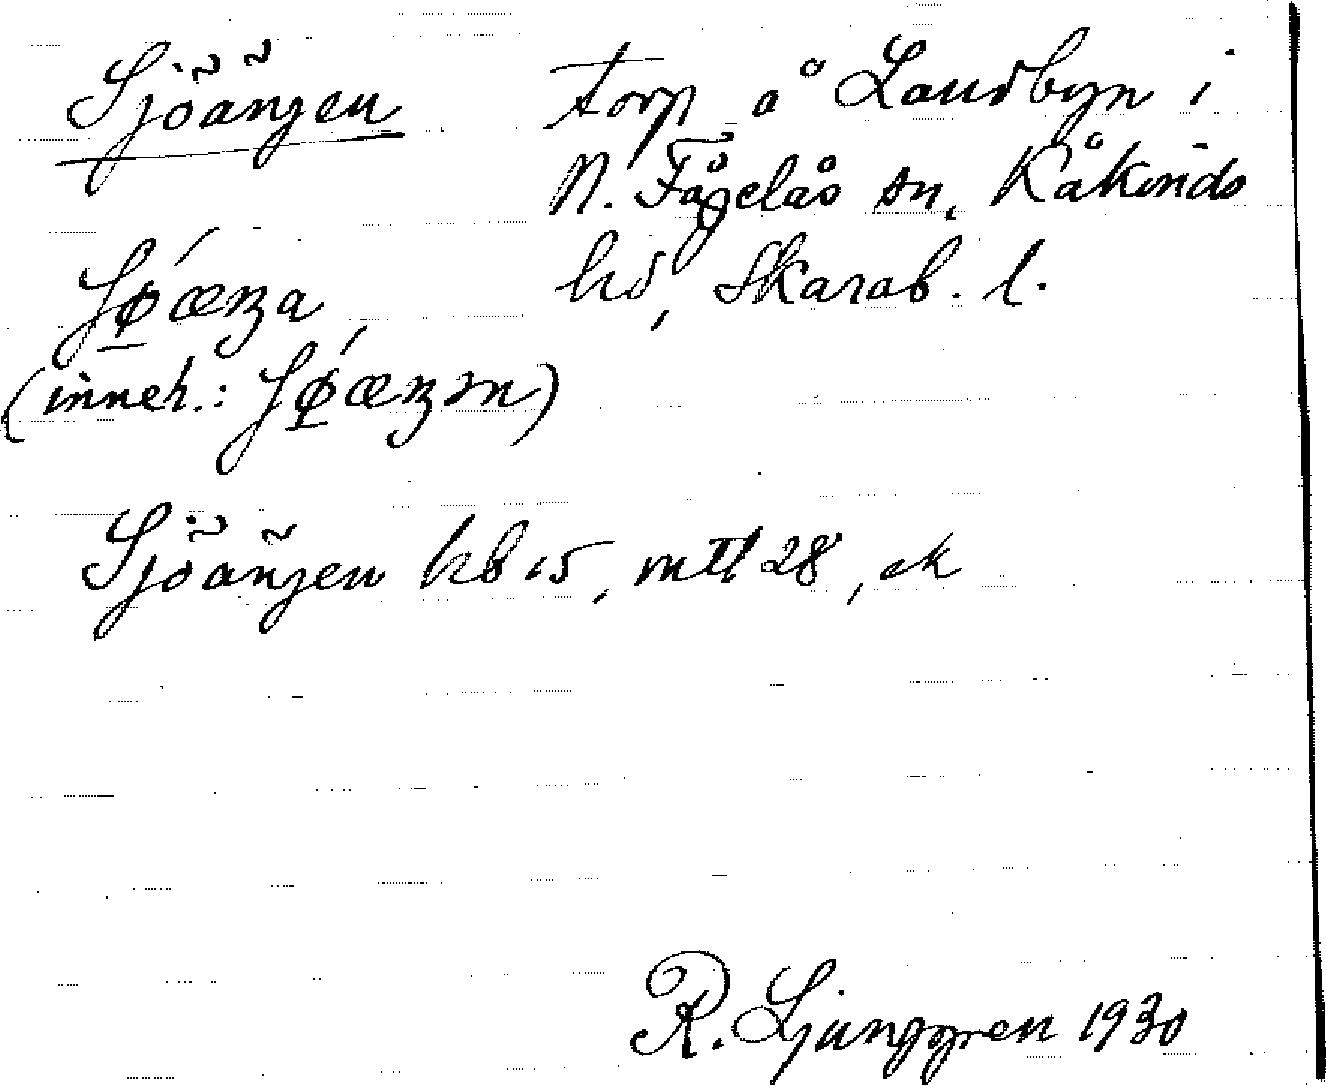 Sjöängen torp å Landbyn i
N. Fågelås sn, Kåkinds
hd, Skarab. l.
(inneh.:
Sjöängen kb 15, mtl 28, ek
R. Ljunggren 1930